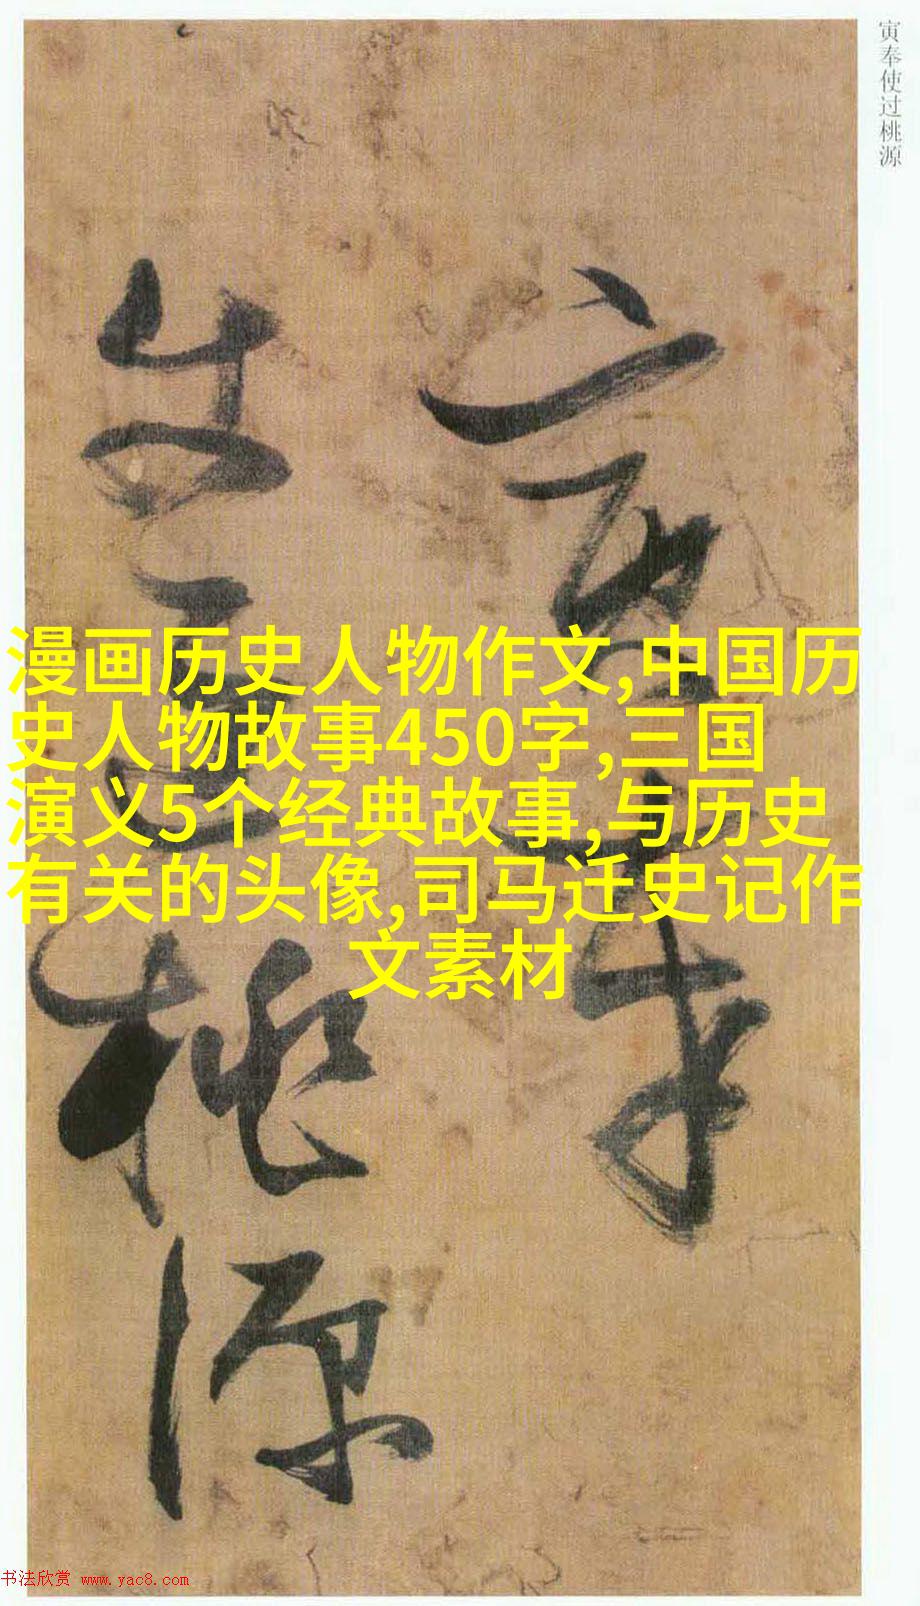 寅奉使过桃源
寅奉
使过桃源
漫画历史人物作文,中国历
史人物故事450字,三国
演义5个经典故事,与历史
有关的头像,司马迁史记作
文素材
书法欣赏 www.yac8.com